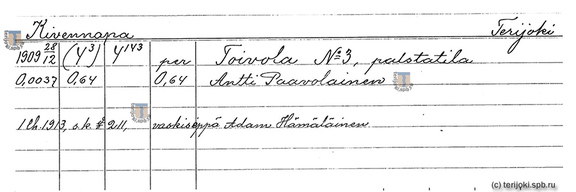 Kivennapa Terijoki
1909 28/12 (4³) 4¹⁴³ per Toivola №3, palstatila
0,0037 0,64 0,64 Antti Paavolainen
1 Ch. 1913, s.k. # 211, vaskiseppä Adam Hämäläinen
(c) terijoki.spb.ru